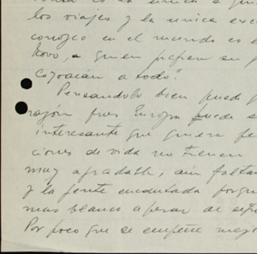 los viajes y la unica exc
conozco en el mundo es
Rovo, a quien prefiere su
Coyoacan a todo!
Pensandolo bien puede
razón pues Europa puede s
interesante que quiera pe
ciones de vida no tienen
muy agradable, aun faltan
y la gente encantada porqu
mas blanco a pesar de
Por poco que se empeñe mejo